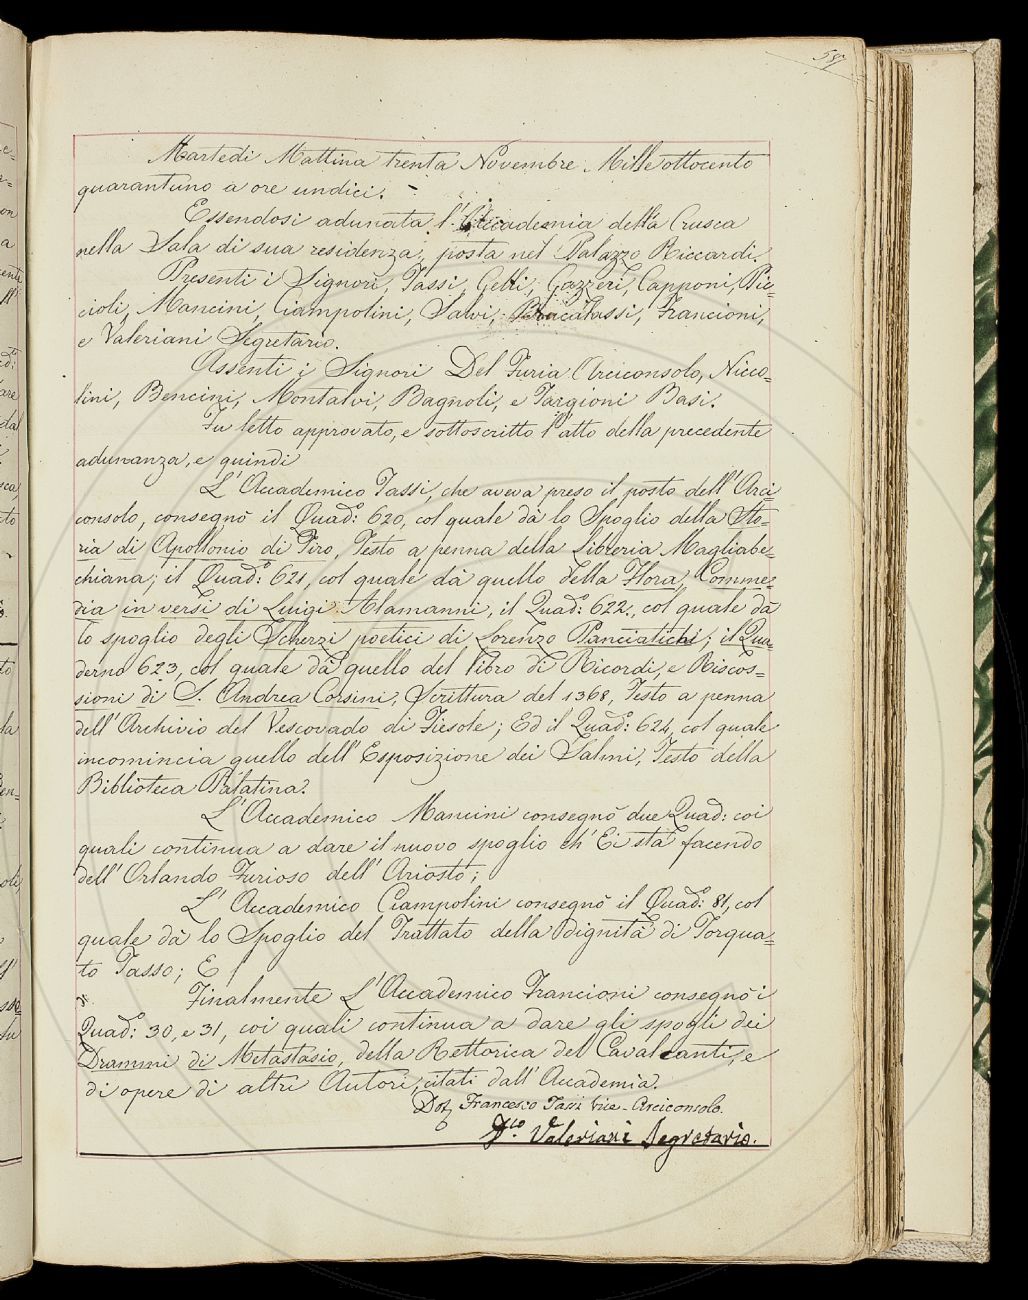 587
Martedi Mattina trenta Novembre Mille ottocento
quarantuno a ore undici.
Essendosi adunata l'Accademia della Crusca
nella Sala di sua residenza, posta nel Palazzo Riccardi.
Presenti i Signori, Tassi, Gelli, Gazzeri, Capponi, Pic=
cioli, Mancini, Ciampolini, Salvi, Brucalassi, Francioni,
e Valeriani Segretario.
Assenti i Signori Del Furia Arciconsolo, Nicco=
lini, Bencini, Montalvi, Bagnoli, e Targioni Basi.
Fu letto approvato, e sottoscritto l'atto della precedente
adunanza, e quindi
L'Accademico Tassi, che aveva preso il posto dell'Arci=
consolo, consegnò il Quad:º 620, col quale dà lo Spoglio della Sto=
ria di Apollonio di Tiro, Testo a penna della Libreria Magliabe=
chiana; il Quad:º 621, col quale dà quello della Flora, Comme=
dia in versi di Luigi Alamanni, il Quad:º 622., col quale dà
lo spoglio degli Scherzi poetici di Lorenzo Panciatichi; il Qua=
derno 623, col quale dà quello del libro di Ricordi, e Riscos=
sioni di S. Andrea Corsini, Scrittura del 1368, Testo a penna
dell'Archivio del Vescovado di Fiesole; Ed il Quad:º 624, col quale
incomincia quello dell'Esposizione dei Salmi, Testo della
Biblioteca Palatina.
L'Accademico Mancini consegnò due Quad: coi
quali continua a dare il nuovo spoglio ch'Ei sta facendo
dell'Orlando Furioso dell'Ariosto;
L'Accademico Ciampolini consegnò il Quad:º 81, col
quale dà lo Spoglio del Trattato della dignità di Torqua=
to Tasso; E
Finalmente L'Accademico Francioni consegnò i
Quad:º 30, e 31, coi quali continua a dare gli spogli dei
Drammi di Metastasio, della Rettorica del Cavalcanti, e
di opere di altri Autori, citati dall'Accademia.
Dot Francesco Tassi Vice-Arciconsolo.
Valeriani Segretario.